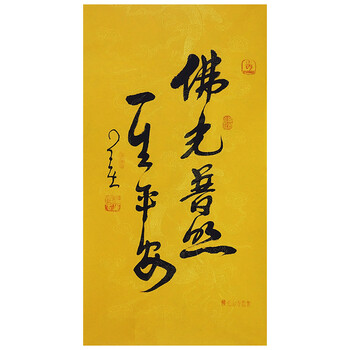 佛光普照
一生平安
星云